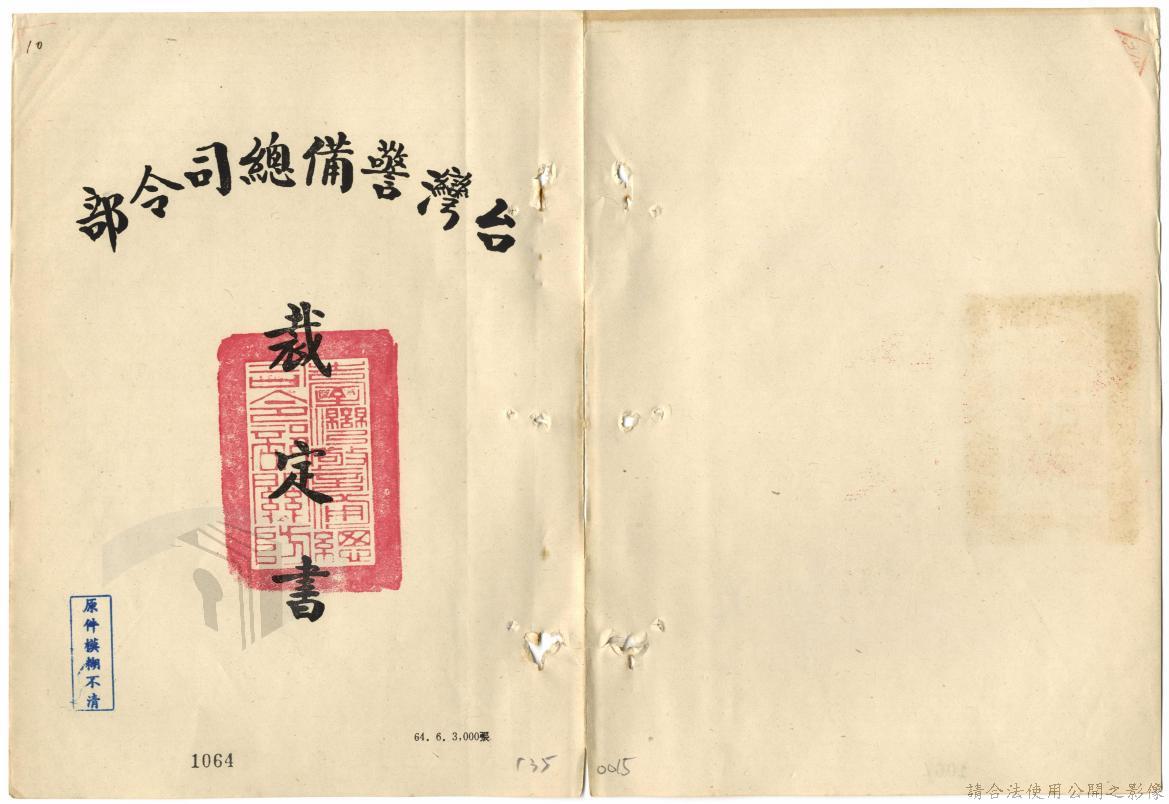 10
台灣警備總司令部
裁定書
臺灣警備總
司令部關防
原件模糊不清
64. 6. 3,000張
1064
135
0015
請合法使用公開之影像